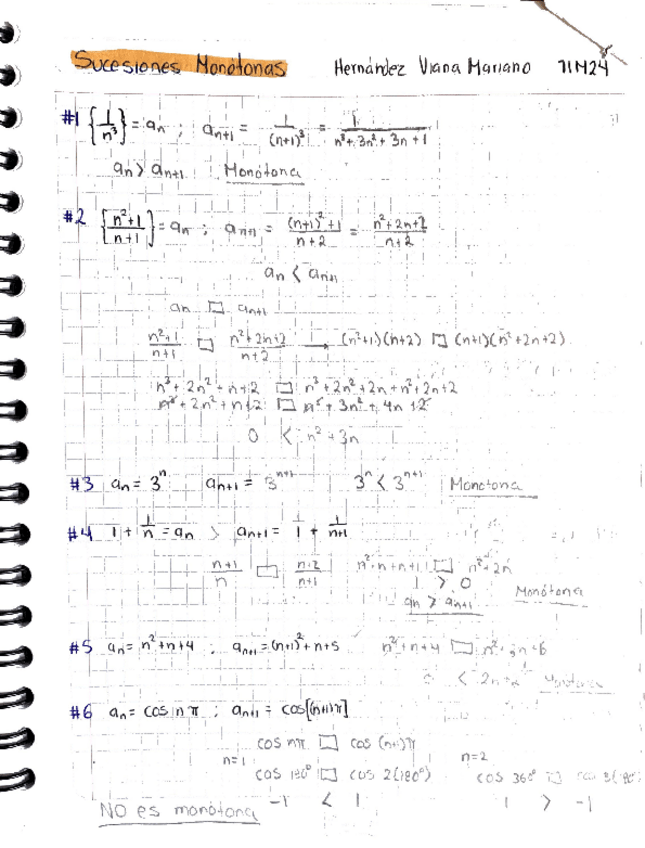 Sucesiones Monótonas Hernández Viana Mariano 71M24
#1 {1/n³} = aₙ ; aₙ₊₁ = 1/(n+1)³ = 1/(n³+3n²+3n+1)
aₙ > aₙ₊₁ Monótona
#2 {(n²+1)/(n+1)} = aₙ ; aₙ₊₁ = ((n+1)²+1)/(n+2) = (n²+2n+2)/(n+2)
aₙ < aₙ₊₁
aₙ □ aₙ₊₁
(n²+1)/(n+1) □ (n²+2n+2)/(n+2) → (n²+1)(n+2) □ (n+1)(n²+2n+2)
n³+2n²+n+2 □ n³+2n²+2n+n²+2n+2
n³+2n²+n+2 □ n³+3n²+4n+2
0 < n²+3n
#3 aₙ = 3ⁿ aₙ₊₁ = 3ⁿ⁺¹ 3ⁿ < 3ⁿ⁺¹ Monótona
#4 1+1/n = aₙ > aₙ₊₁ = 1+1/(n+1)
(n+1)/n □ (n+2)/(n+1) n²+n+n+1 □ n²+2n
1 > 0
aₙ > aₙ₊₁ Monótona
#5 aₙ = n²+n+4 ; aₙ₊₁ = (n+1)²+n+5 n²+n+4 □ n²+3n+6
< 2n+2 Monótona
#6 aₙ = cos nπ ; aₙ₊₁ = cos[(n+1)π]
cos nπ □ cos (n+1)π
n=1 n=2
cos 180° □ cos 2(180°) cos 360° □ cos 3(180°)
-1 < 1 1 > -1
NO es monótona